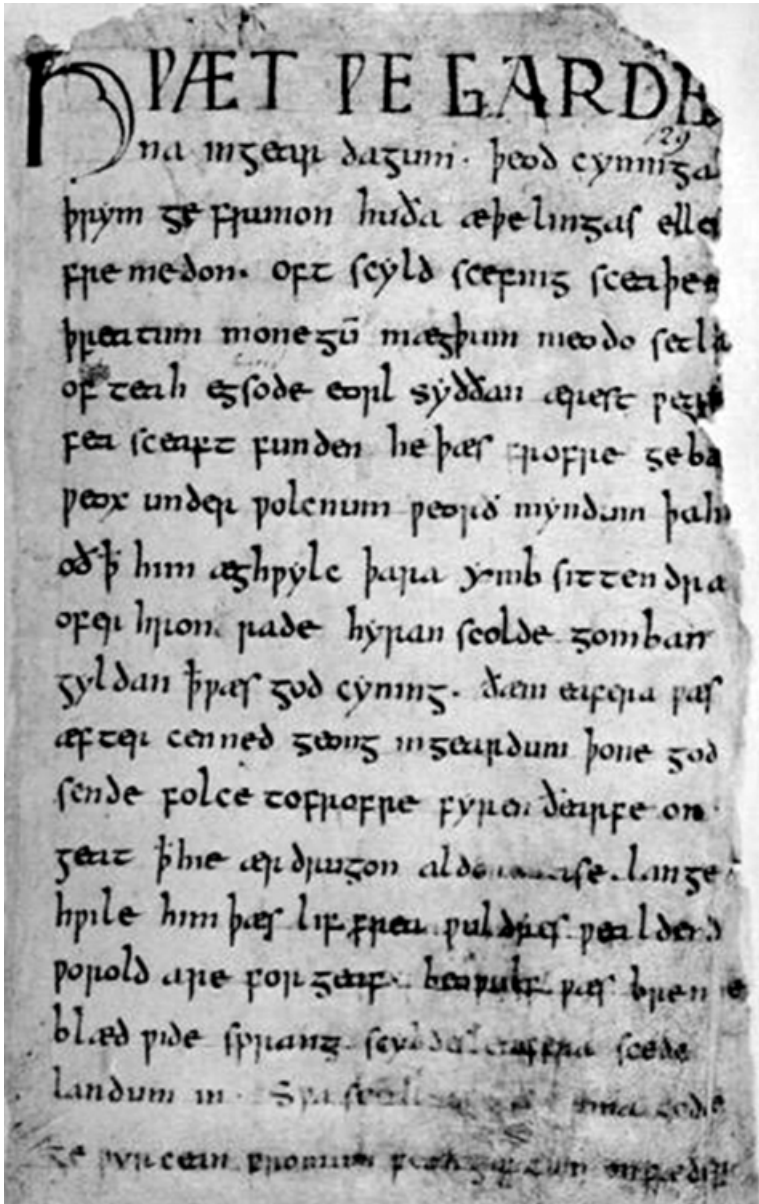 HǷÆT ǷE GARDE
129
na ingear dagum . þeod cyninga
þrym ge frunon huða æþelingas elle
fre medon . oft scyld scefing sceaþe
þreatum monegū mægþum meodo setla
of teah egsode eorl syððan ærest ƿear
fea sceaft funden he þæs frofre geba
ƿeox under ƿolcnum ƿeorð myndum þah
oð ꝥ him æghƿylc þara ymb sittendra
ofer hron rade hyran scolde gomban
gyldan ꝥ ƿæs god cyning . ðæm eafera ƿæs
æfter cenned geong ingeardum þone god
sende folce tofrofre fyren ðearfe on
geat ꝥ hie ær drugon aldor ase . lange
hƿile him þæs lif frea ƿuldres ƿealdend
ƿorold are for geaf . beoƿulf ƿæs breme
blæd ƿide sprang scyldes eafera scede
landum in . Sƿa sceal ma gode
ge ƿyrcean fromum feoh giftum